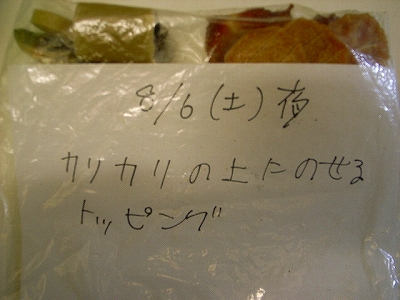 8/6(土)夜
カリカリの上にのせる
トッピング